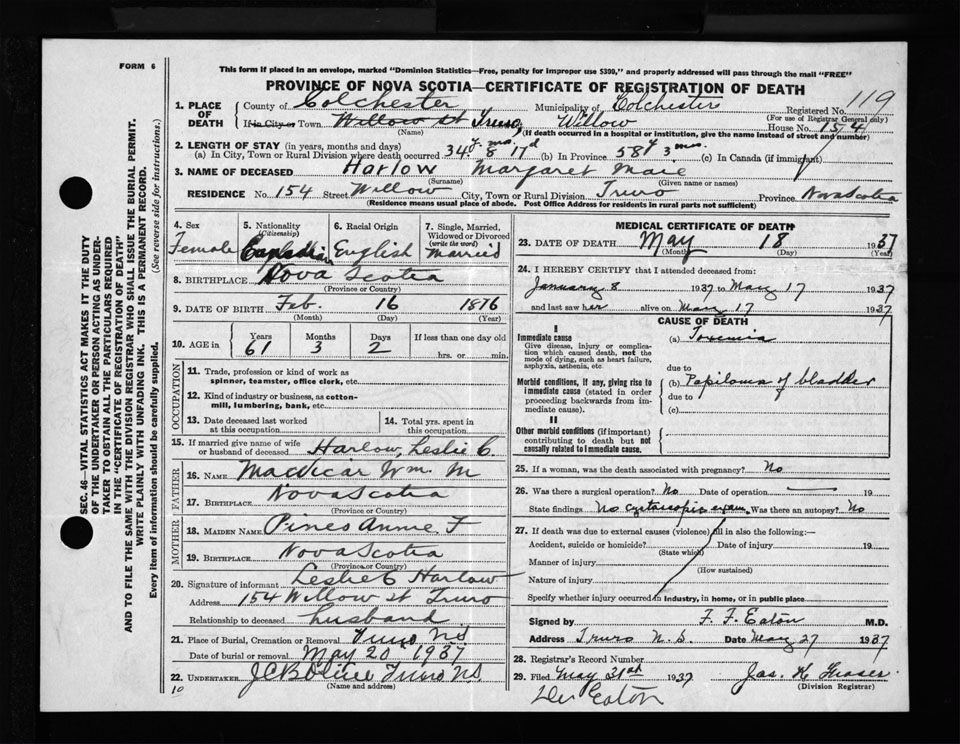 FORM 6
This form if placed in an envelope, marked "Dominion Statistics—Free, penalty for improper use $300," and properly addressed will pass through the mail "FREE"
PROVINCE OF NOVA SCOTIA—CERTIFICATE OF REGISTRATION OF DEATH
1. PLACE OF DEATH County of Colchester Municipality of Colchester Registered No. 119
(For use of Registrar General only)
If in City or Town Willow St Truro, Willow House No. 154
(Name) (If death occurred in a hospital or institution, give the name instead of street and number)
2. LENGTH OF STAY (in years, months and days)
(a) In City, Town or Rural Division where death occurred 34 y. 8 mo. 17 d (b) In Province 58 y 3 mos. (c) In Canada (if immigrant)
3. NAME OF DECEASED Harlow Margaret Maie
(Surname) (Given name or names)
RESIDENCE No. 154 Street Willow City, Town or Rural Division Truro Province Nova Scotia
(Residence means usual place of abode. Post Office Address for residents in rural parts not sufficient)
4. Sex Female
5. Nationality (Citizenship) Canadian
6. Racial Origin English
7. Single, Married, Widowed or Divorced (write the word) Married
8. BIRTHPLACE Nova Scotia
(Province or Country)
9. DATE OF BIRTH Feb. 16 1876
(Month) (Day) (Year)
10. AGE in Years 61 Months 3 Days 2 If less than one day old hrs. or min.
OCCUPATION
11. Trade, profession or kind of work as spinner, teamster, office clerk, etc.
12. Kind of industry or business, as cotton-mill, lumbering, bank, etc.
13. Date deceased last worked at this occupation
14. Total yrs. spent in this occupation
15. If married give name of wife or husband of deceased Harlow, Leslie C.
FATHER
16. NAME MacVicar Wm. M
17. BIRTHPLACE Nova Scotia
(Province or Country)
MOTHER
18. MAIDEN NAME Pineo Annie F
19. BIRTHPLACE Nova Scotia
(Province or Country)
20. Signature of informant Leslie C Harlow
Address 154 Willow St Truro
Relationship to deceased husband
21. Place of Burial, Cremation or Removal Truro N.S.
Date of burial or removal May 20 1937
22. UNDERTAKER Truro N.S.
(Name and address)
10
MEDICAL CERTIFICATE OF DEATH
23. DATE OF DEATH May 18 1937
(Month) (Day) (Year)
24. I HEREBY CERTIFY that I attended deceased from:
January 8 1937 to May 17 1937
and last saw her alive on May 17 1937
CAUSE OF DEATH
I
Immediate cause
Give disease, injury or complication which caused death, not the mode of dying, such as heart failure, asphyxia, asthenia, etc.
(a) Toxemia
due to
Morbid conditions, if any, giving rise to immediate cause (stated in order proceeding backwards from immediate cause).
(b) Papiloma of bladder
due to
(c)
II
Other morbid conditions (if important) contributing to death but not causally related to immediate cause.
25. If a woman, was the death associated with pregnancy? No
26. Was there a surgical operation? No Date of operation — 19
State findings No cystoscopic exam, Was there an autopsy? No
27. If death was due to external causes (violence) fill in also the following:—
Accident, suicide or homicide? Date of injury 19
(State which)
Manner of injury
(How sustained)
Nature of injury
Specify whether injury occurred in industry, in home, or in public place
Signed by F. F. Eaton M.D.
Address Truro N.S. Date May 27 1937
28. Registrar's Record Number
29. Filed May 31st 1937 Jas. H. Fraser
(Division Registrar)
Dr Eaton
SEC. 46—VITAL STATISTICS ACT MAKES IT THE DUTY
OF THE UNDERTAKER OR PERSON ACTING AS UNDER-
TAKER TO OBTAIN ALL THE PARTICULARS REQUIRED
IN THE "CERTIFICATE OF REGISTRATION OF DEATH"
AND TO FILE THE SAME WITH THE DIVISION REGISTRAR WHO SHALL ISSUE THE BURIAL PERMIT.
WRITE PLAINLY WITH UNFADING INK. THIS IS A PERMANENT RECORD.
Every item of information should be carefully supplied. (See reverse side for instructions.)